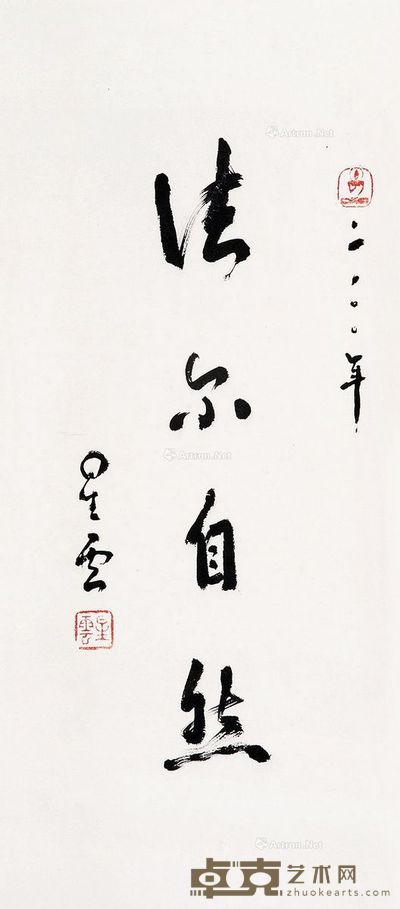 二〇〇〇年
法尔自然
星雲
星雲
Artron.Net
Artron.Net
Artron.Net
卓克艺术网
zhuokearts.com